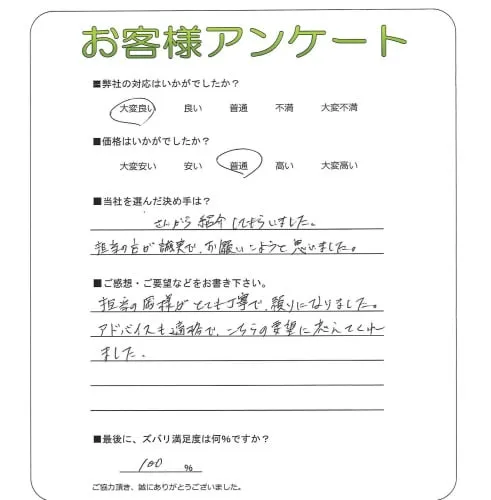 お客様アンケート
■弊社の対応はいかがでしたか?
大変良い 良い 普通 不満 大変不満
■価格はいかがでしたか?
大変安い 安い 普通 高い 大変高い
■当社を選んだ決め手は?
さんから紹介してもらいました。
担当の方が誠実で、お願いしようと思いました。
■ご感想・ご要望などをお書き下さい。
担当の 様がとても丁寧で、頼りになりました。
アドバイスも適格で、こちらの要望に応えてくれ
ました。
■最後に、ズバリ満足度は何%ですか?
100 %
ご協力頂き、誠にありがとうございました。